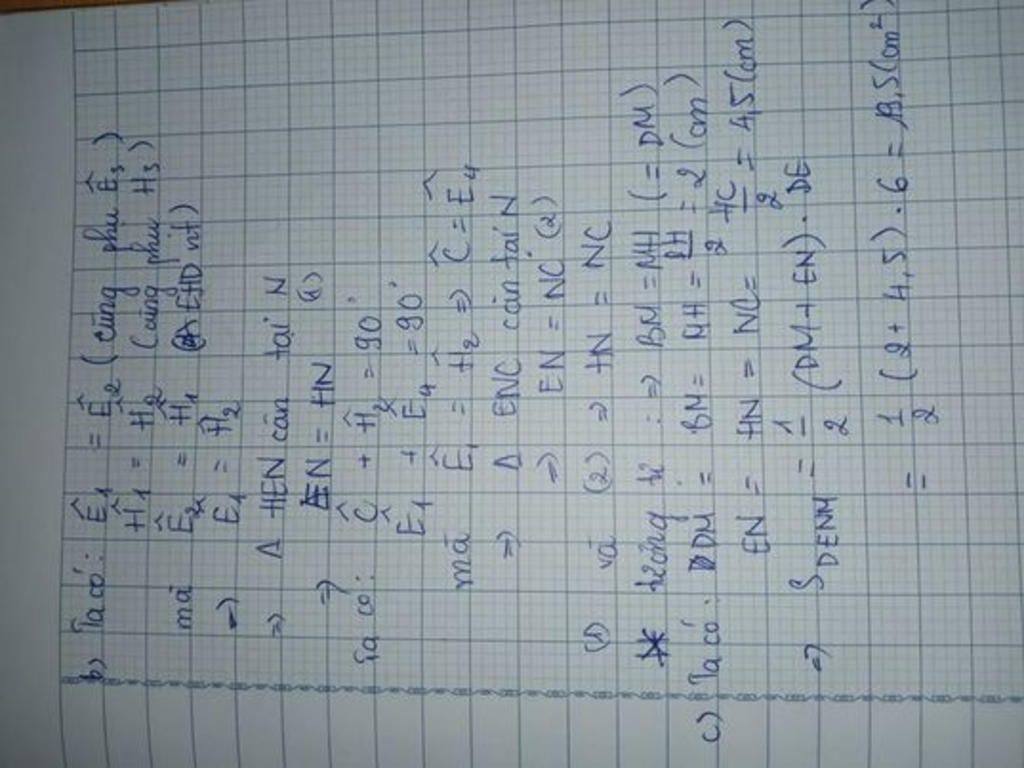 b) Ta có: Ê1 = Ê2 (cùng phụ Ê3)
Ĥ1 = Ĥ2 (cùng phụ Ĥ3)
mà Ê2 = Ĥ1 (EHD nt)
=> Ê1 = Ĥ2
=> Δ HEN cân tại N
=> EN = HN (1)
Ta có: Ĉ + Ĥ2 = 90°
Ê1 + Ê4 = 90°
mà Ê1 = Ĥ2 => Ĉ = Ê4
=> Δ ENC cân tại N
=> EN = NC (2)
(1) và (2) => HN = NC
tương tự : => BM = MH (= DM)
c) Ta có: DM = BM = MH = BH/2 = 2 (cm)
EN = HN = NC = HC/2 = 4,5 (cm)
=> S DENM = 1/2 (DM + EN). DE
= 1/2 (2 + 4,5). 6 = 19,5 (cm²)